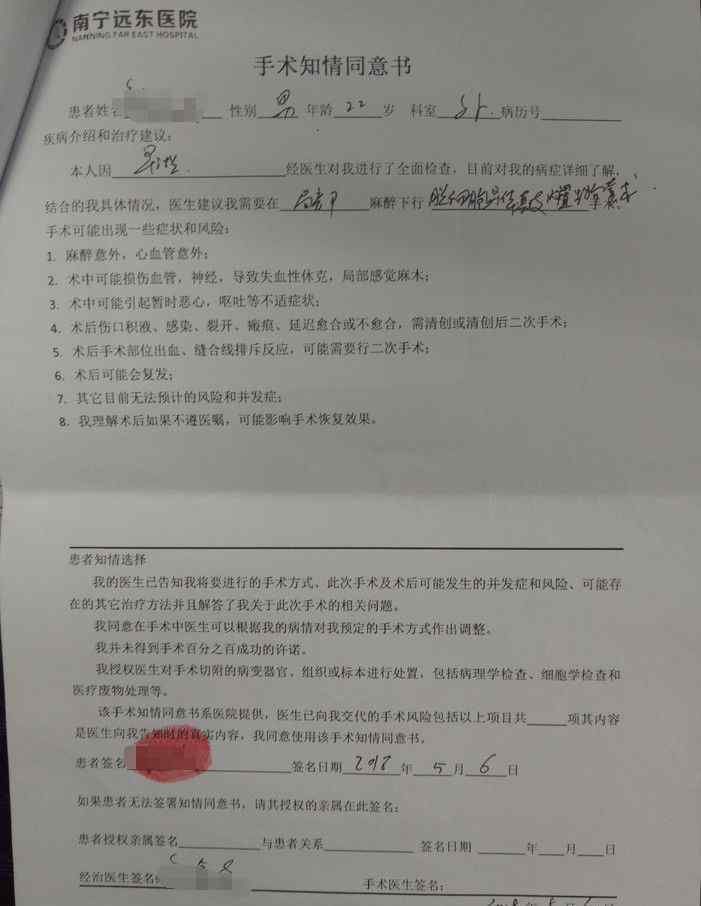 南宁远东医院
NANNING FAR EAST HOSPITAL
手术知情同意书
患者姓名 性别 男 年龄 22 岁 科室 外 病历号
疾病介绍和治疗建议:
本人因 经医生对我进行了全面检查，目前对我的病症详细了解，
结合的我具体情况，医生建议我需要在 局部 麻醉下行 脱细胞异体真皮
手术可能出现一些症状和风险:
1. 麻醉意外，心血管意外;
2. 术中可能损伤血管，神经，导致失血性休克，局部感觉麻木;
3. 术中可能引起暂时恶心，呕吐等不适症状;
4. 术后伤口积液、感染、裂开、瘢痕、延迟愈合或不愈合，需清创或清创后二次手术;
5. 术后手术部位出血、缝合线排斥反应，可能需要行二次手术;
6. 术后可能会复发;
7. 其它目前无法预计的风险和并发症;
8. 我理解术后如果不遵医嘱，可能影响手术恢复效果。
患者知情选择
我的医生已告知我将要进行的手术方式、此次手术及术后可能发生的并发症和风险、可能存
在的其它治疗方法并且解答了我关于此次手术的相关问题。
我同意在手术中医生可以根据我的病情对我预定的手术方式作出调整。
我并未得到手术百分之百成功的许诺。
我授权医生对手术切附的病变器官、组织或标本进行处置，包括病理学检查、细胞学检查和
医疗废物处理等。
该手术知情同意书系医院提供，医生已向我交代的手术风险包括以上项目共 项其内容
是医生向我告知时的真实内容，我同意使用该手术知情同意书。
患者签名 签名日期 2018 年 5 月 6 日
如果患者无法签署知情同意书，请其授权的亲属在此签名:
患者授权亲属签名 与患者关系 签名日期 年 月 日
经治医生签名: 手术医生签名: